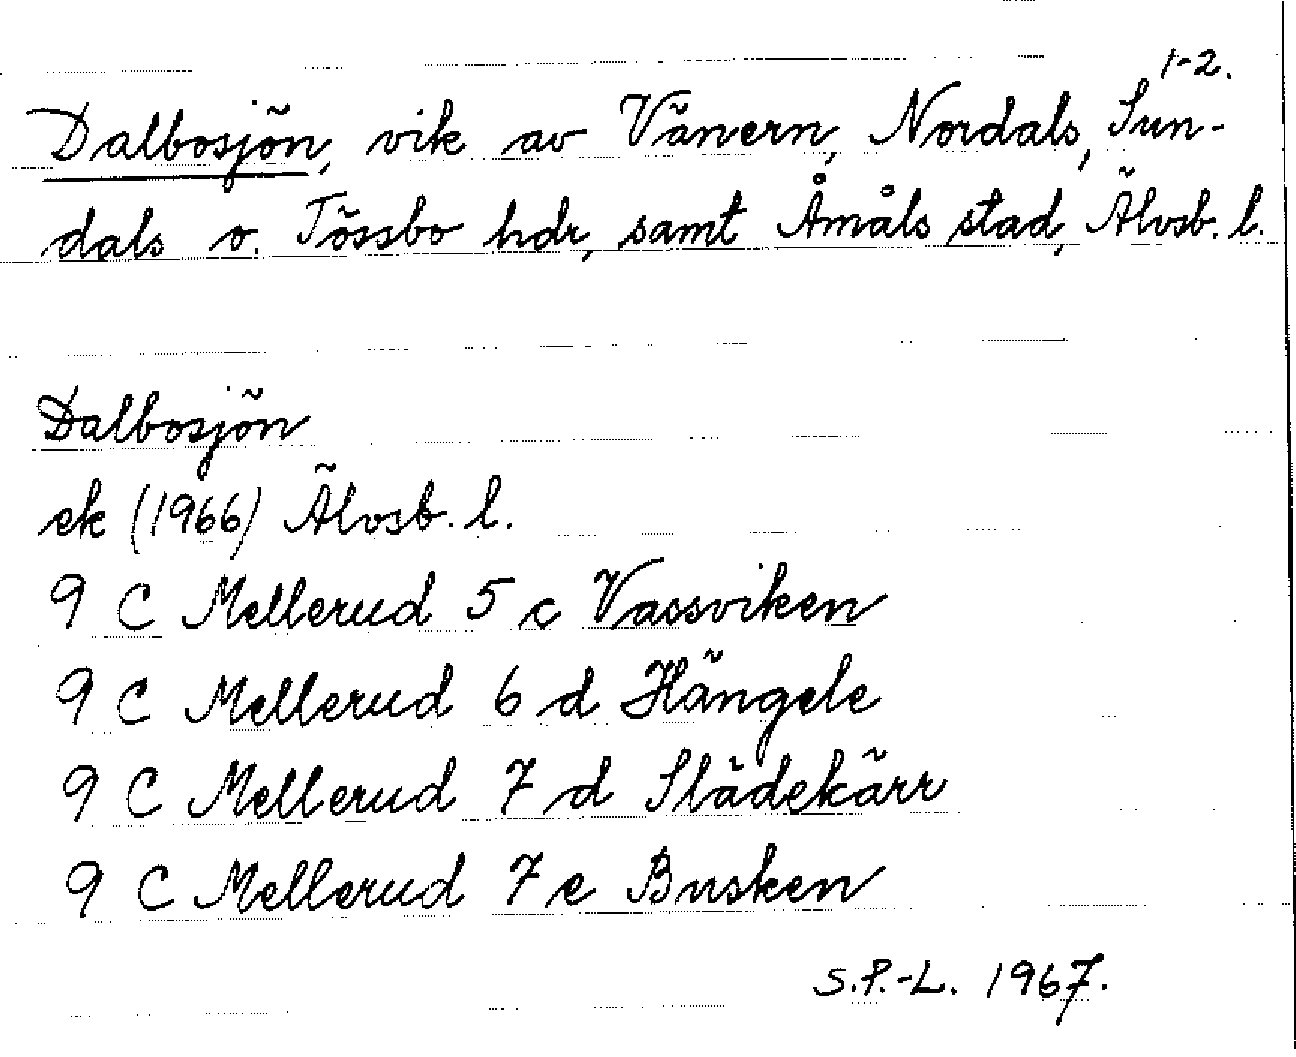 1-2.
Dalbosjön, vik av Vänern, Nordals, Sun-
dals o. Tössbo hdr, samt Åmåls stad, Älvsb. l.
Dalbosjön
ek (1966) Älvsb. l.
9 C Mellerud 5 c Vassviken
9 C Mellerud 6 d Hängele
9 C Mellerud 7 d Slädekärr
9 C Mellerud 7 e Busken
S.P.-L. 1967.